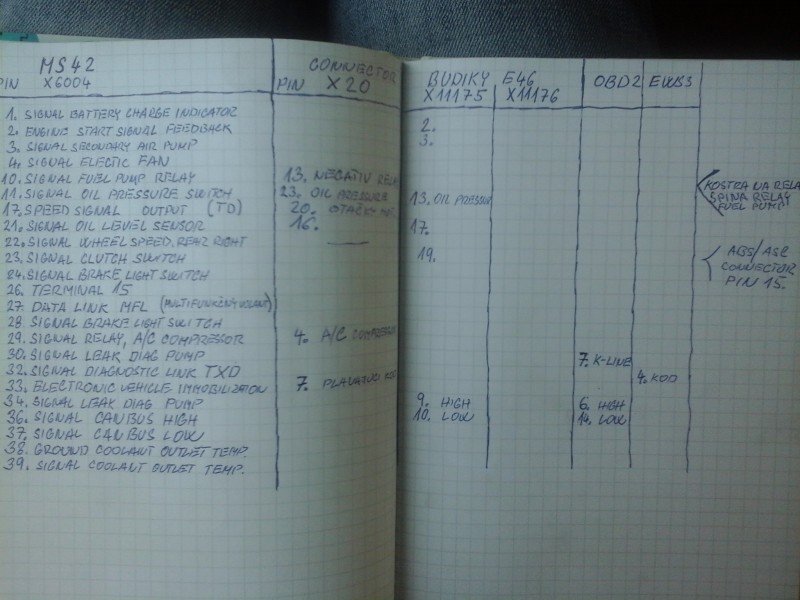 MS42
PIN X6004
1. SIGNAL BATTERY CHARGE INDICATOR
2. ENGINE START SIGNAL FEEDBACK
3. SIGNAL SECONDARY AIR PUMP
4. SIGNAL ELECTIC FAN
10. SIGNAL FUEL PUMP RELAY
11. SIGNAL OIL PRESSURE SWITCH
17. SPEED SIGNAL OUTPUT (TD)
21. SIGNAL OIL LEVEL SENSOR
22. SIGNAL WHEEL SPEED, REAR RIGHT
23. SIGNAL CLUTCH SWITCH
24. SIGNAL BRAKE LIGHT SWITCH
26. TERMINAL 15
27. DATA LINK MFL (MULTIFUNKČNÝ VOLANT)
28. SIGNAL BRAKE LIGHT SWITCH
29. SIGNAL RELAY, A/C COMPRESSOR
30. SIGNAL LEAK DIAG PUMP
32. SIGNAL DIAGNOSTIC LINK TXD
33. ELECTRONIC VEHICLE IMMOBILIZATION
34. SIGNAL LEAK DIAG PUMP
36. SIGNAL CAN BUS HIGH
37. SIGNAL CAN BUS LOW
38. GROUND COOLANT OUTLET TEMP.
39. SIGNAL COOLANT OUTLET TEMP.
CONNECTOR
PIN X20
13. NEGATIV RELA
23. OIL PRESSURE
20. OTAČKY
16.
4. A/C COMPRESSOR
7. PLAVAJUCI
BUDIKY E46
X11175 X11176
2.
3.
13. OIL PRESSUR
17.
19.
9. HIGH
10. LOW
OBD2
7. K-LINE
6. HIGH
14. LOW
EWS3
4. KOD
KOSTRA NA RELA
SPINA RELAY
FUEL PUMP
ABS/ASC
CONNECTOR
PIN 15.